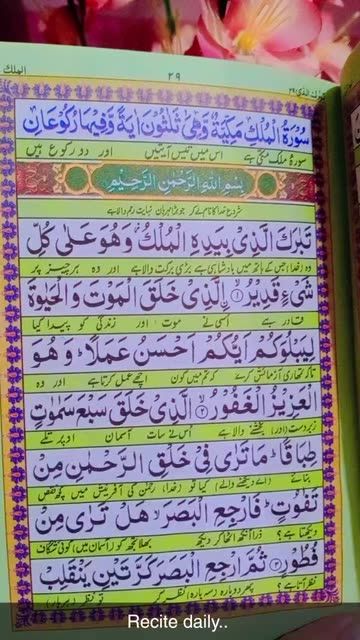 الملك ٢٩ تبرك الذي ٢٩
سُوْرَةُ الْمُلْكِ مَكِّيَّةٌ وَّهِيَ ثَلٰثُوْنَ اٰيَةً وَّفِيْهَا رُكُوْعَانِ
سورۂ ملک مکی ہے اس میں تیس آیتیں اور دو رکوع ہیں
بِسْمِ اللّٰهِ الرَّحْمٰنِ الرَّحِيْمِ
شروع خدا کا نام لے کر جو بڑا مہربان نہایت رحم والا ہے
تَبٰرَكَ الَّذِيْ بِيَدِهِ الْمُلْكُ وَهُوَ عَلٰى كُلِّ
وہ (خدا) جس کے ہاتھ میں بادشاہی ہے بڑی برکت والا ہے اور وہ ہر چیز پر
شَيْءٍ قَدِيْرُ ۝۱ الَّذِيْ خَلَقَ الْمَوْتَ وَالْحَيٰوةَ
قادر ہے اسی نے موت اور زندگی کو پیدا کیا
لِيَبْلُوَكُمْ اَيُّكُمْ اَحْسَنُ عَمَلًا ؕ وَهُوَ
تاکہ تمہاری آزمائش کرے کہ تم میں کون اچھے عمل کرتا ہے اور وہ
الْعَزِيْزُ الْغَفُوْرُ ۝۲ الَّذِيْ خَلَقَ سَبْعَ سَمٰوٰتٍ
زبردست (اور) بخشنے والا ہے اس نے سات آسمان اوپر تلے
طِبَاقًا ؕ مَا تَرٰى فِيْ خَلْقِ الرَّحْمٰنِ مِنْ
بنائے (اے دیکھنے والے) کیا تو (خدا) رحمٰن کی آفرینش میں کچھ نقص
تَفٰوُتٍ ؕ فَارْجِعِ الْبَصَرَ ۙ هَلْ تَرٰى مِنْ
دیکھتا ہے؟ ذرا آنکھ اٹھا کر دیکھ بھلا تجھ کو (آسمان میں) کوئی شگاف
فُطُوْرٍ ۝۳ ثُمَّ ارْجِعِ الْبَصَرَ كَرَّتَيْنِ يَنْقَلِبْ
نظر آتا ہے؟ پھر دوبارہ (سہ بارہ) نظر کر تو نظر (ہر بار)
Recite daily..